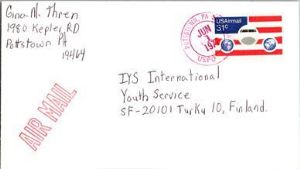 Gina M. Thren
1980 Kepler RD
Pottstown PA
19464
USAirmail
31c
JUN
USPO
AIR MAIL
IYS International
Youth Service
SF-20101 Turku 10, Finland.